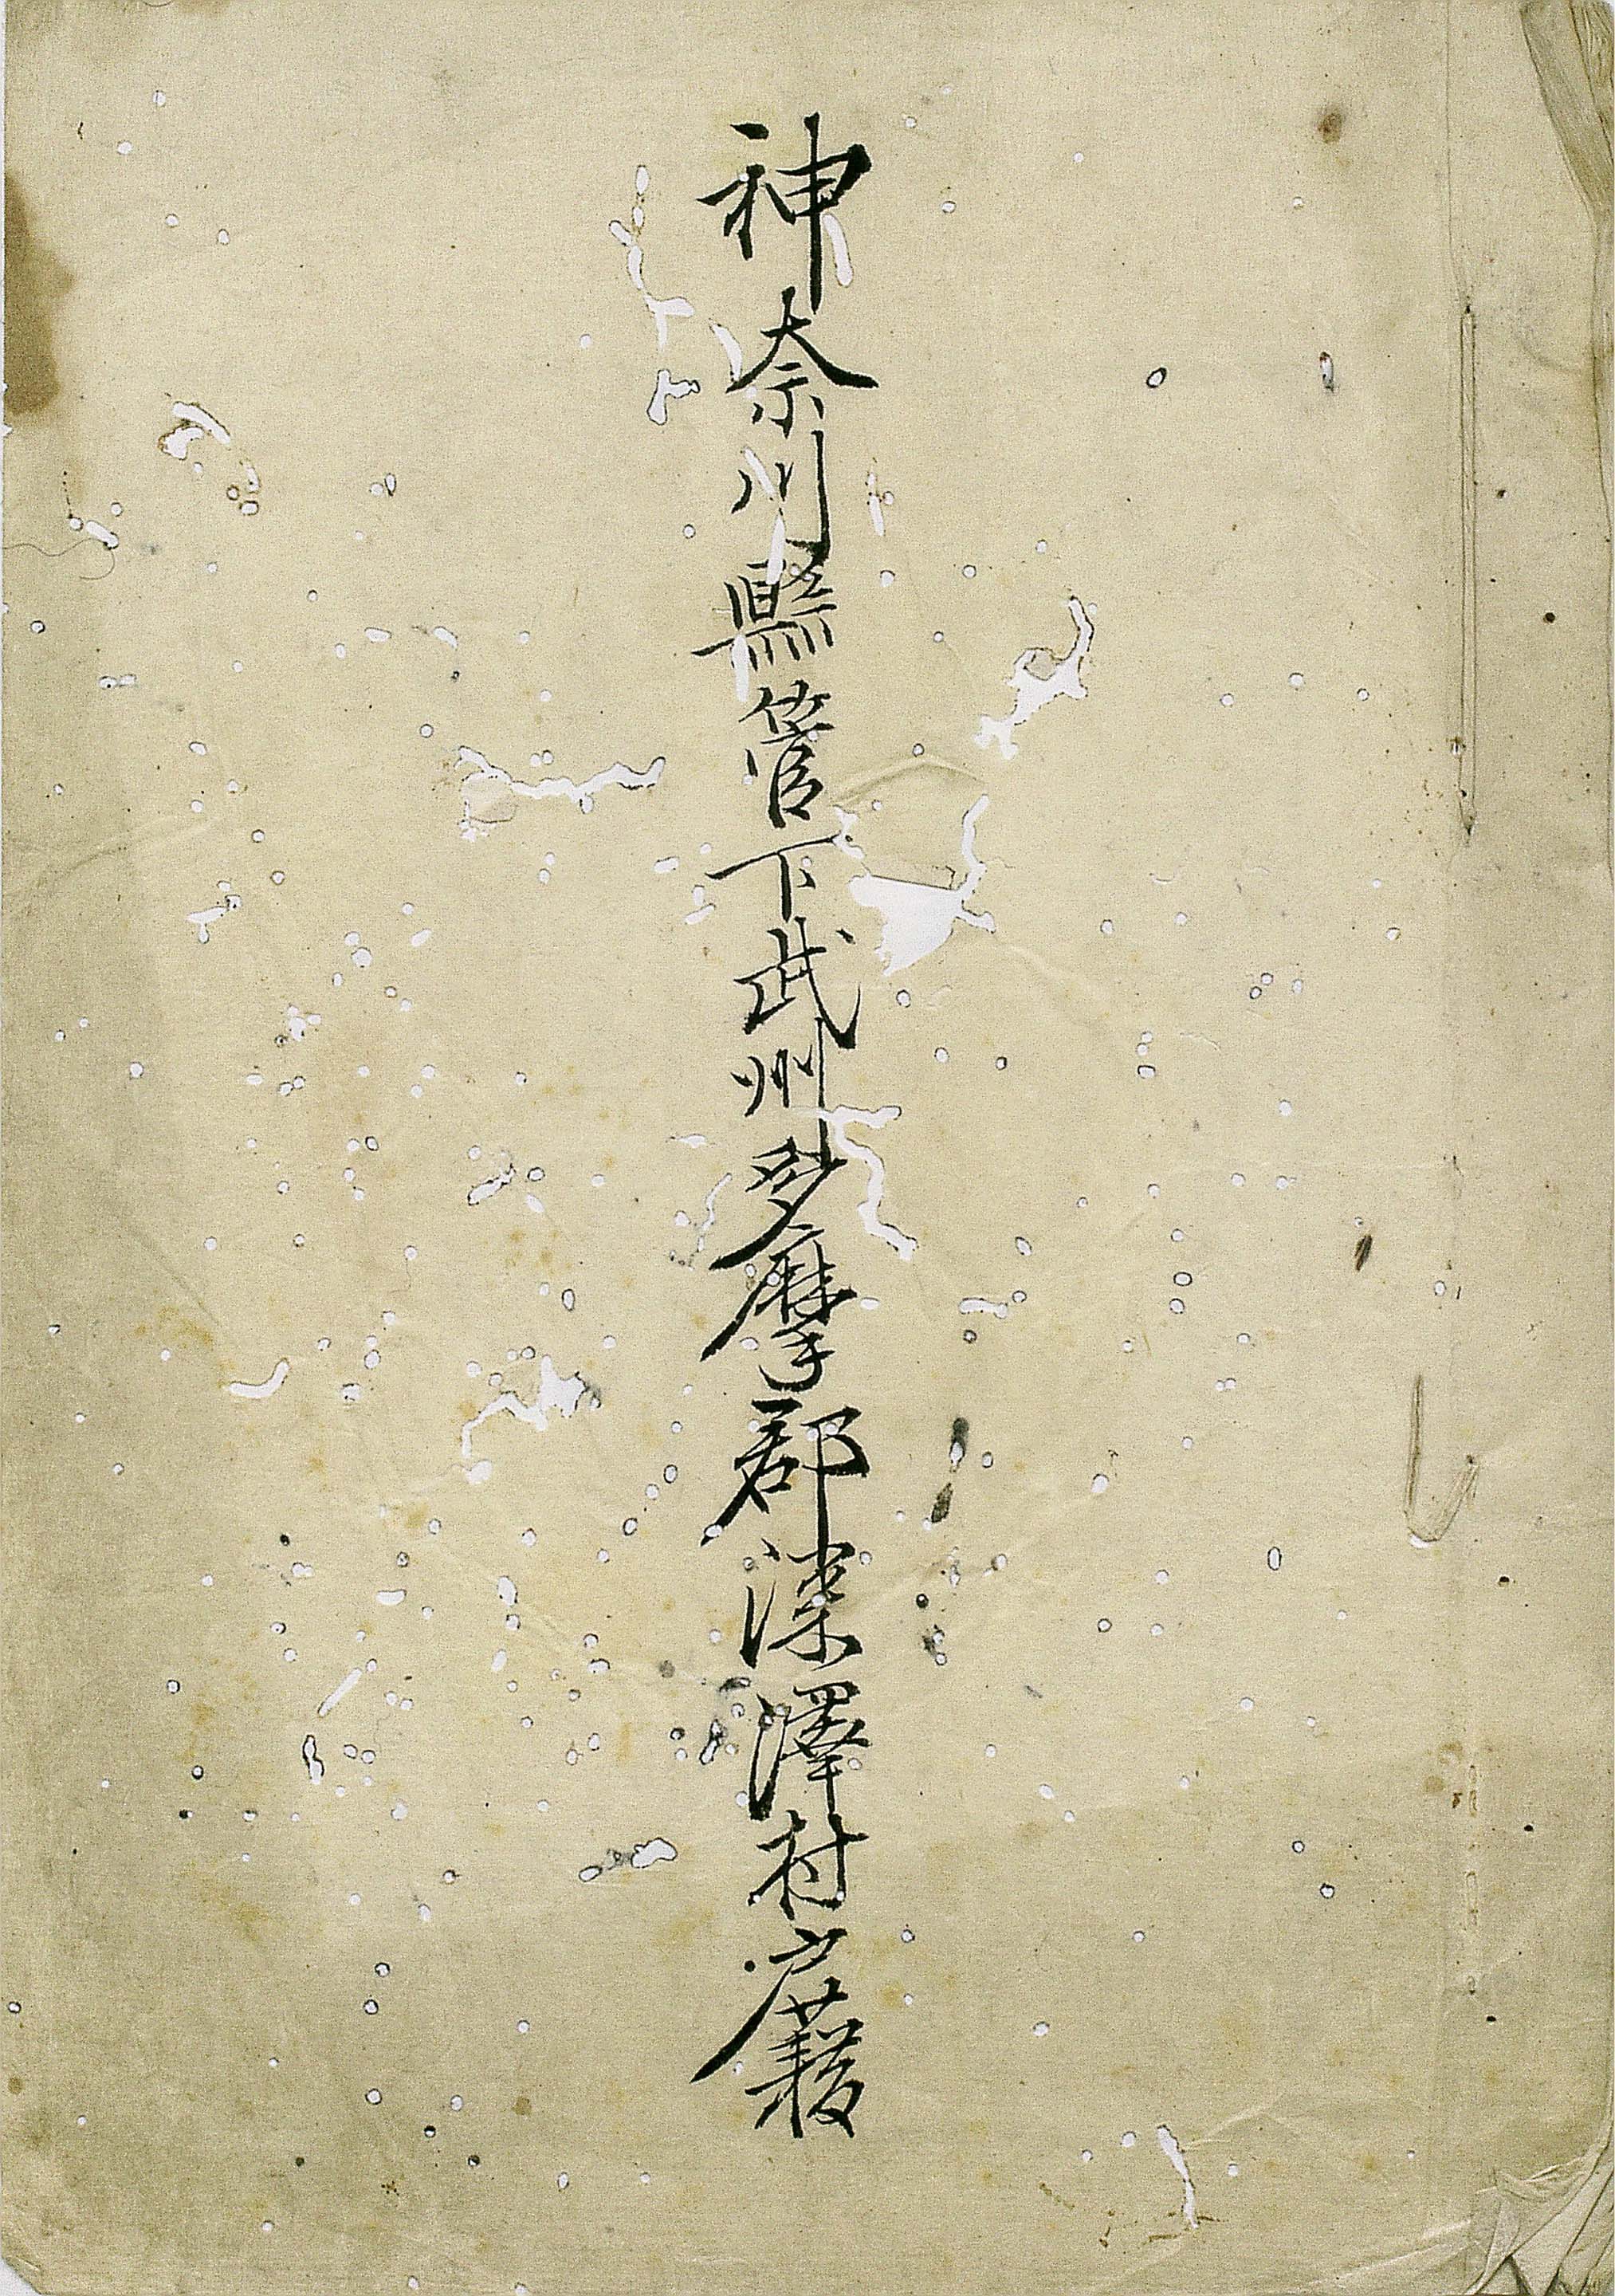 神奈川縣管下武州多摩郡深澤村戸籍